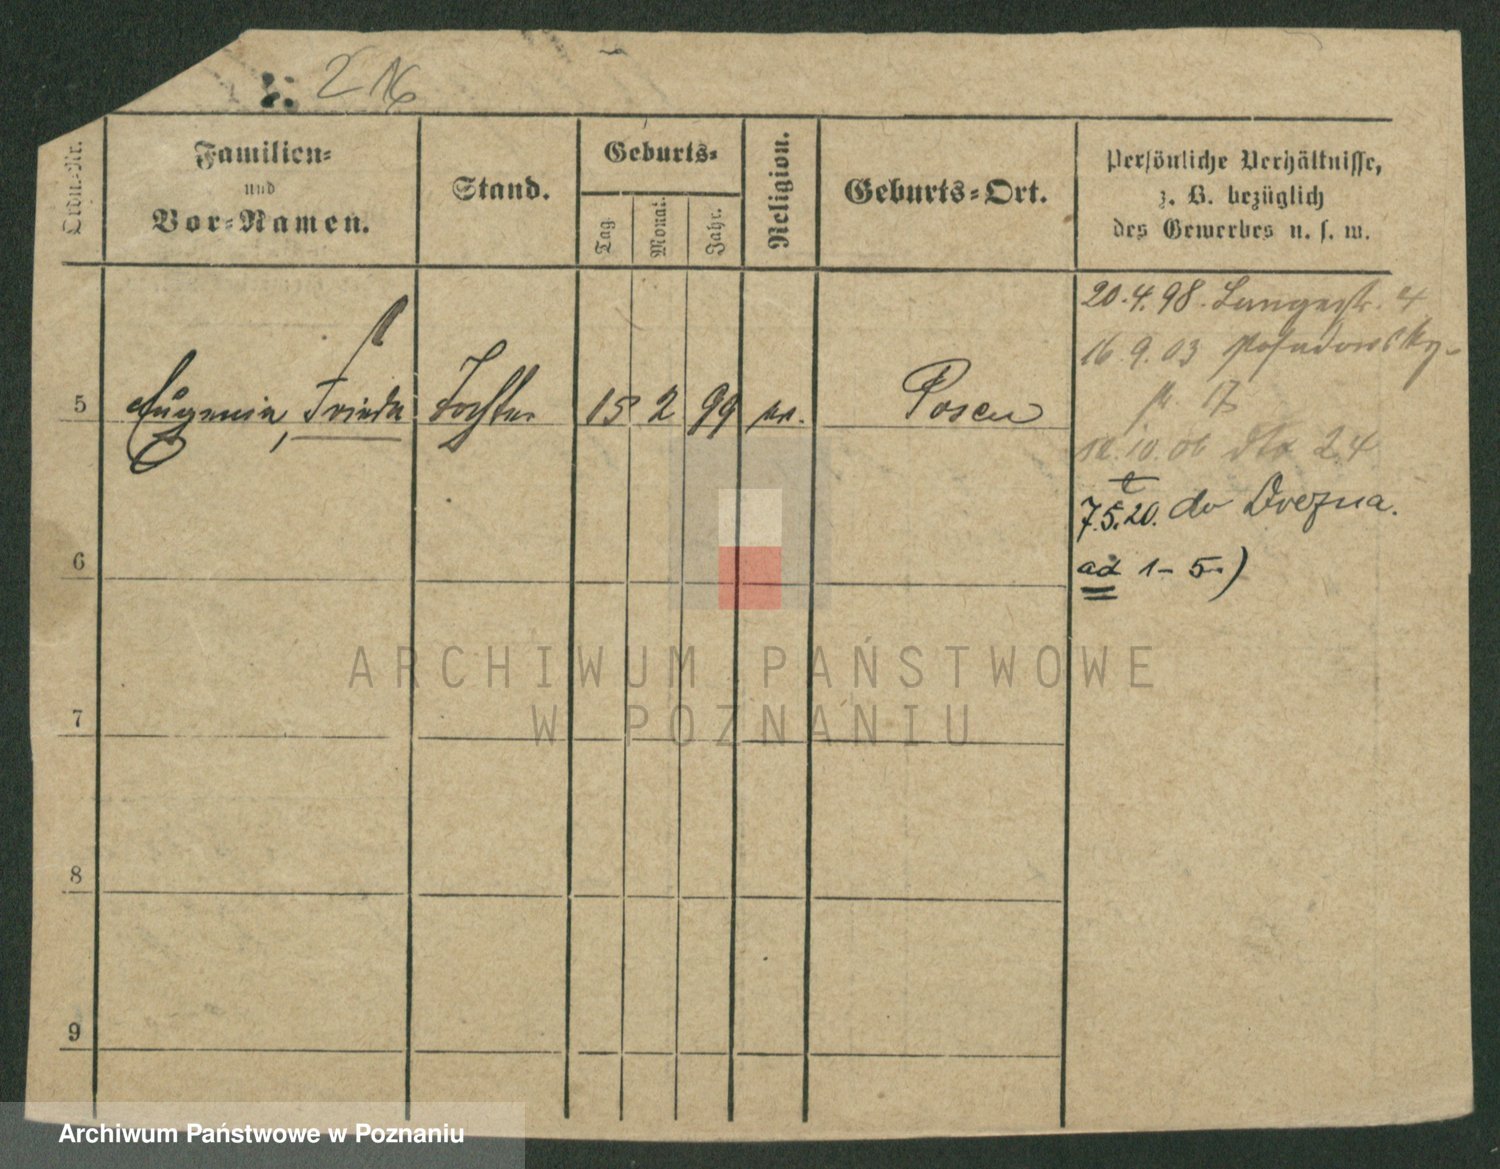 216
Ordn.-Nr.
Familien-
und
Vor-Namen.
Stand.
Geburts-
Tag.
Monat.
Jahr.
Religion.
Geburts-Ort.
Persönliche Verhältnisse,
z. B. bezüglich
des Gewerbes u. s. w.
5 Eugenie, Frieda Tochter 15 2 99 Posen
20.4.98. Langestr. 4
16.9.03 Posadowsky-
17
10.06 dto 24
7.5.20. do Drezna.
ad 1-5)
6
7
8
9
ARCHIWUM PAŃSTWOWE
W POZNANIU
Archiwum Państwowe w Poznaniu